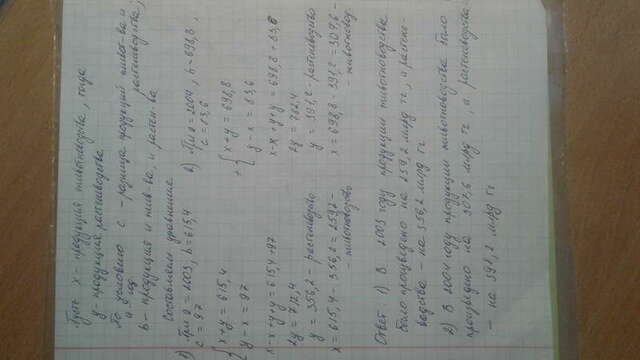 Пусть x - продукция животноводства, тогда
y - продукция растениеводства
По условию c - разница продукций живот-ва и
растениеводства,
a - год
b - продукция и жив-ва, и растен-ва
Составляем уравнение
а) При a = 2003, b = 615,4
c = 97
{ x + y = 615,4
y - x = 97
x - x + y + y = 615,4 + 97
2y = 712,4
y = 356,2 - растениеводство
x = 615,4 - 356,2 = 259,2 -
- животноводство
в) При a = 2004, b = 698,8,
c = 83,6
+ { x + y = 698,8
y - x = 83,6
x - x + y + y = 698,8 + 83,6
2y = 782,4
y = 391,2 - растениеводство
x = 698,8 - 391,2 = 307,6 -
- животновод.
Ответ: 1) В 2003 году продукции животноводства
было произведено на 259,2 млрд тг, а растение-
водства - на 356,2 млрд тг
2) В 2004 году продукции животноводства было
произведено на 307,6 млрд тг, а растениеводства
- на 391,2 млрд тг